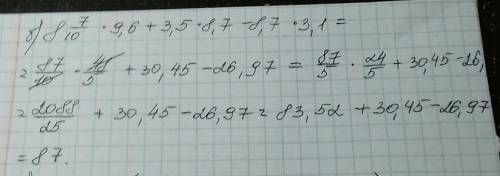 б) 8 7/10 · 9,6 + 3,5 · 8,7 - 8,7 · 3,1 =
= 87/10 · 48/5 + 30,45 - 26,97 = 87/5 · 24/5 + 30,45 - 26,
= 2088/25 + 30,45 - 26,97 = 83,52 + 30,45 - 26,97
= 87.